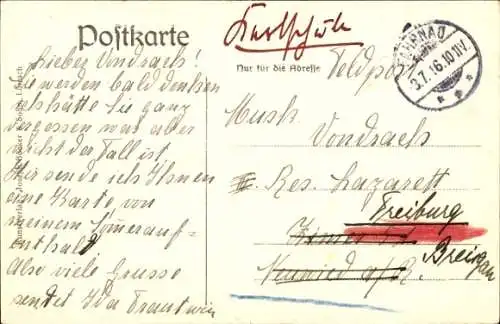 Postkarte
Karlschule
Nur für die Adresse
Feldpost
FAHRNAU
3.7.16.10 11 V.
Lieber Vondrach!
Sie werden bald denken
ich hätte Sie ganz
vergessen was aber
nicht der Fall ist.
Hir sende ich Ihnen
eine Karte von
meinem Sommerauf-
enthalt.
Also viele Grusse
sendet Ida Trautwein
Musk.
Vondrach
Res. Lazarett
Freiburg
Breisgau
Neuwied a/R.